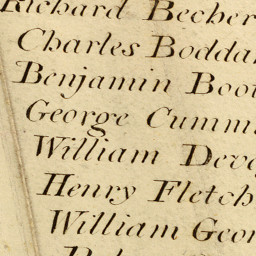 Richard Becher
Charles Bodda
Benjamin Boo
George Cumm
William Devo
Henry Fletch
William Geor